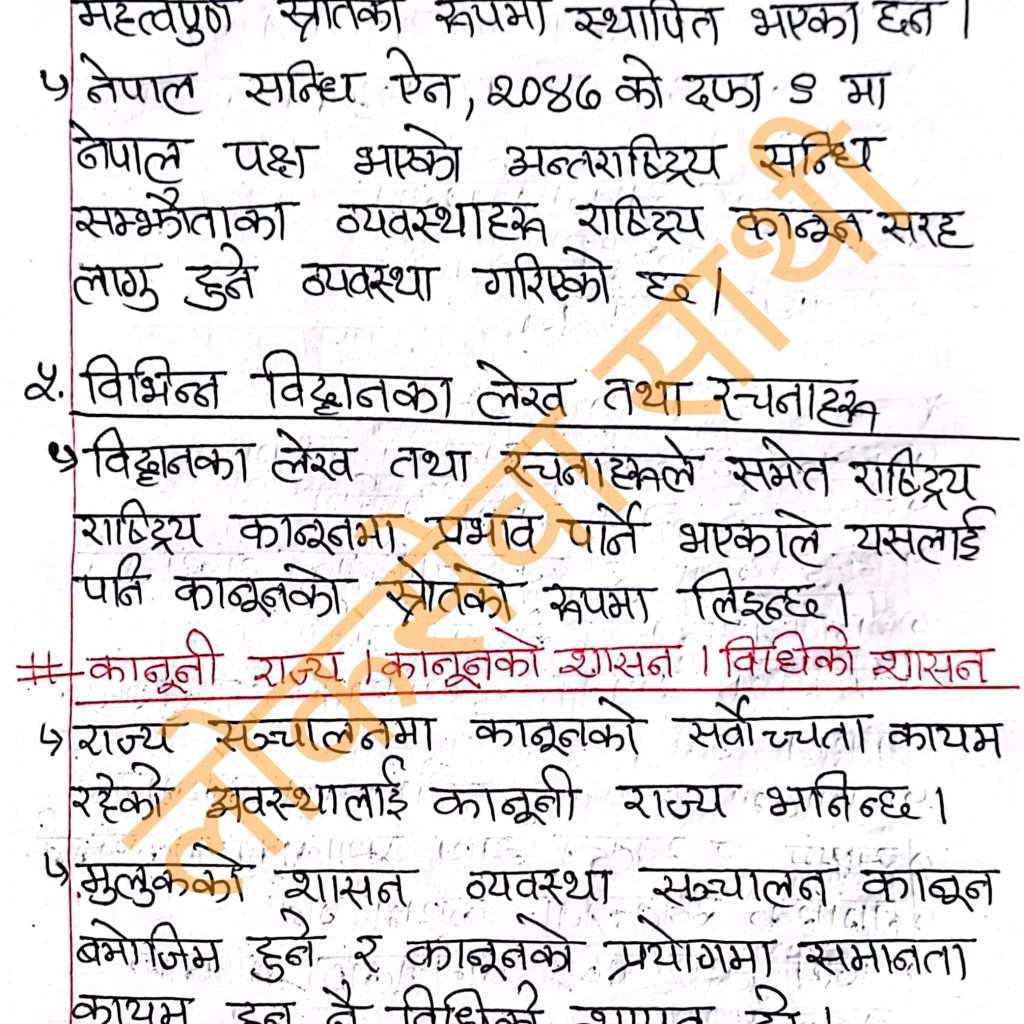 महत्वपुर्ण स्रोतका रूपमा स्थापित भएका छन् ।
↳ नेपाल सन्धि ऐन, २०४७ को दफा ९ मा
नेपाल पक्ष भएको अन्तराष्ट्रिय सन्धि
सम्झौताका व्यवस्थाहरू राष्ट्रिय कानून सरह
लागु हुने व्यवस्था गरिएको छ ।
५. विभिन्न विद्वानका लेख तथा रचनाहरू
↳ विद्वानका लेख तथा रचनाहरूले समेत राष्ट्रिय
राष्ट्रिय कानूनमा प्रभाव पार्ने भएकाले यसलाई
पनि कानूनको स्रोतको रूपमा लिइन्छ ।
# कानूनी राज्य । कानूनको शासन । विधिको शासन
↳ राज्य सञ्चालनमा कानूनको सर्वोच्चता कायम
रहेको अवस्थालाई कानूनी राज्य भनिन्छ ।
↳ मुलुकको शासन व्यवस्था सञ्चालन कानून
बमोजिम हुने र कानूनको प्रयोगमा समानता
कायम हुनु नै विधिको शासन हो ।
लोकसेवा साथी